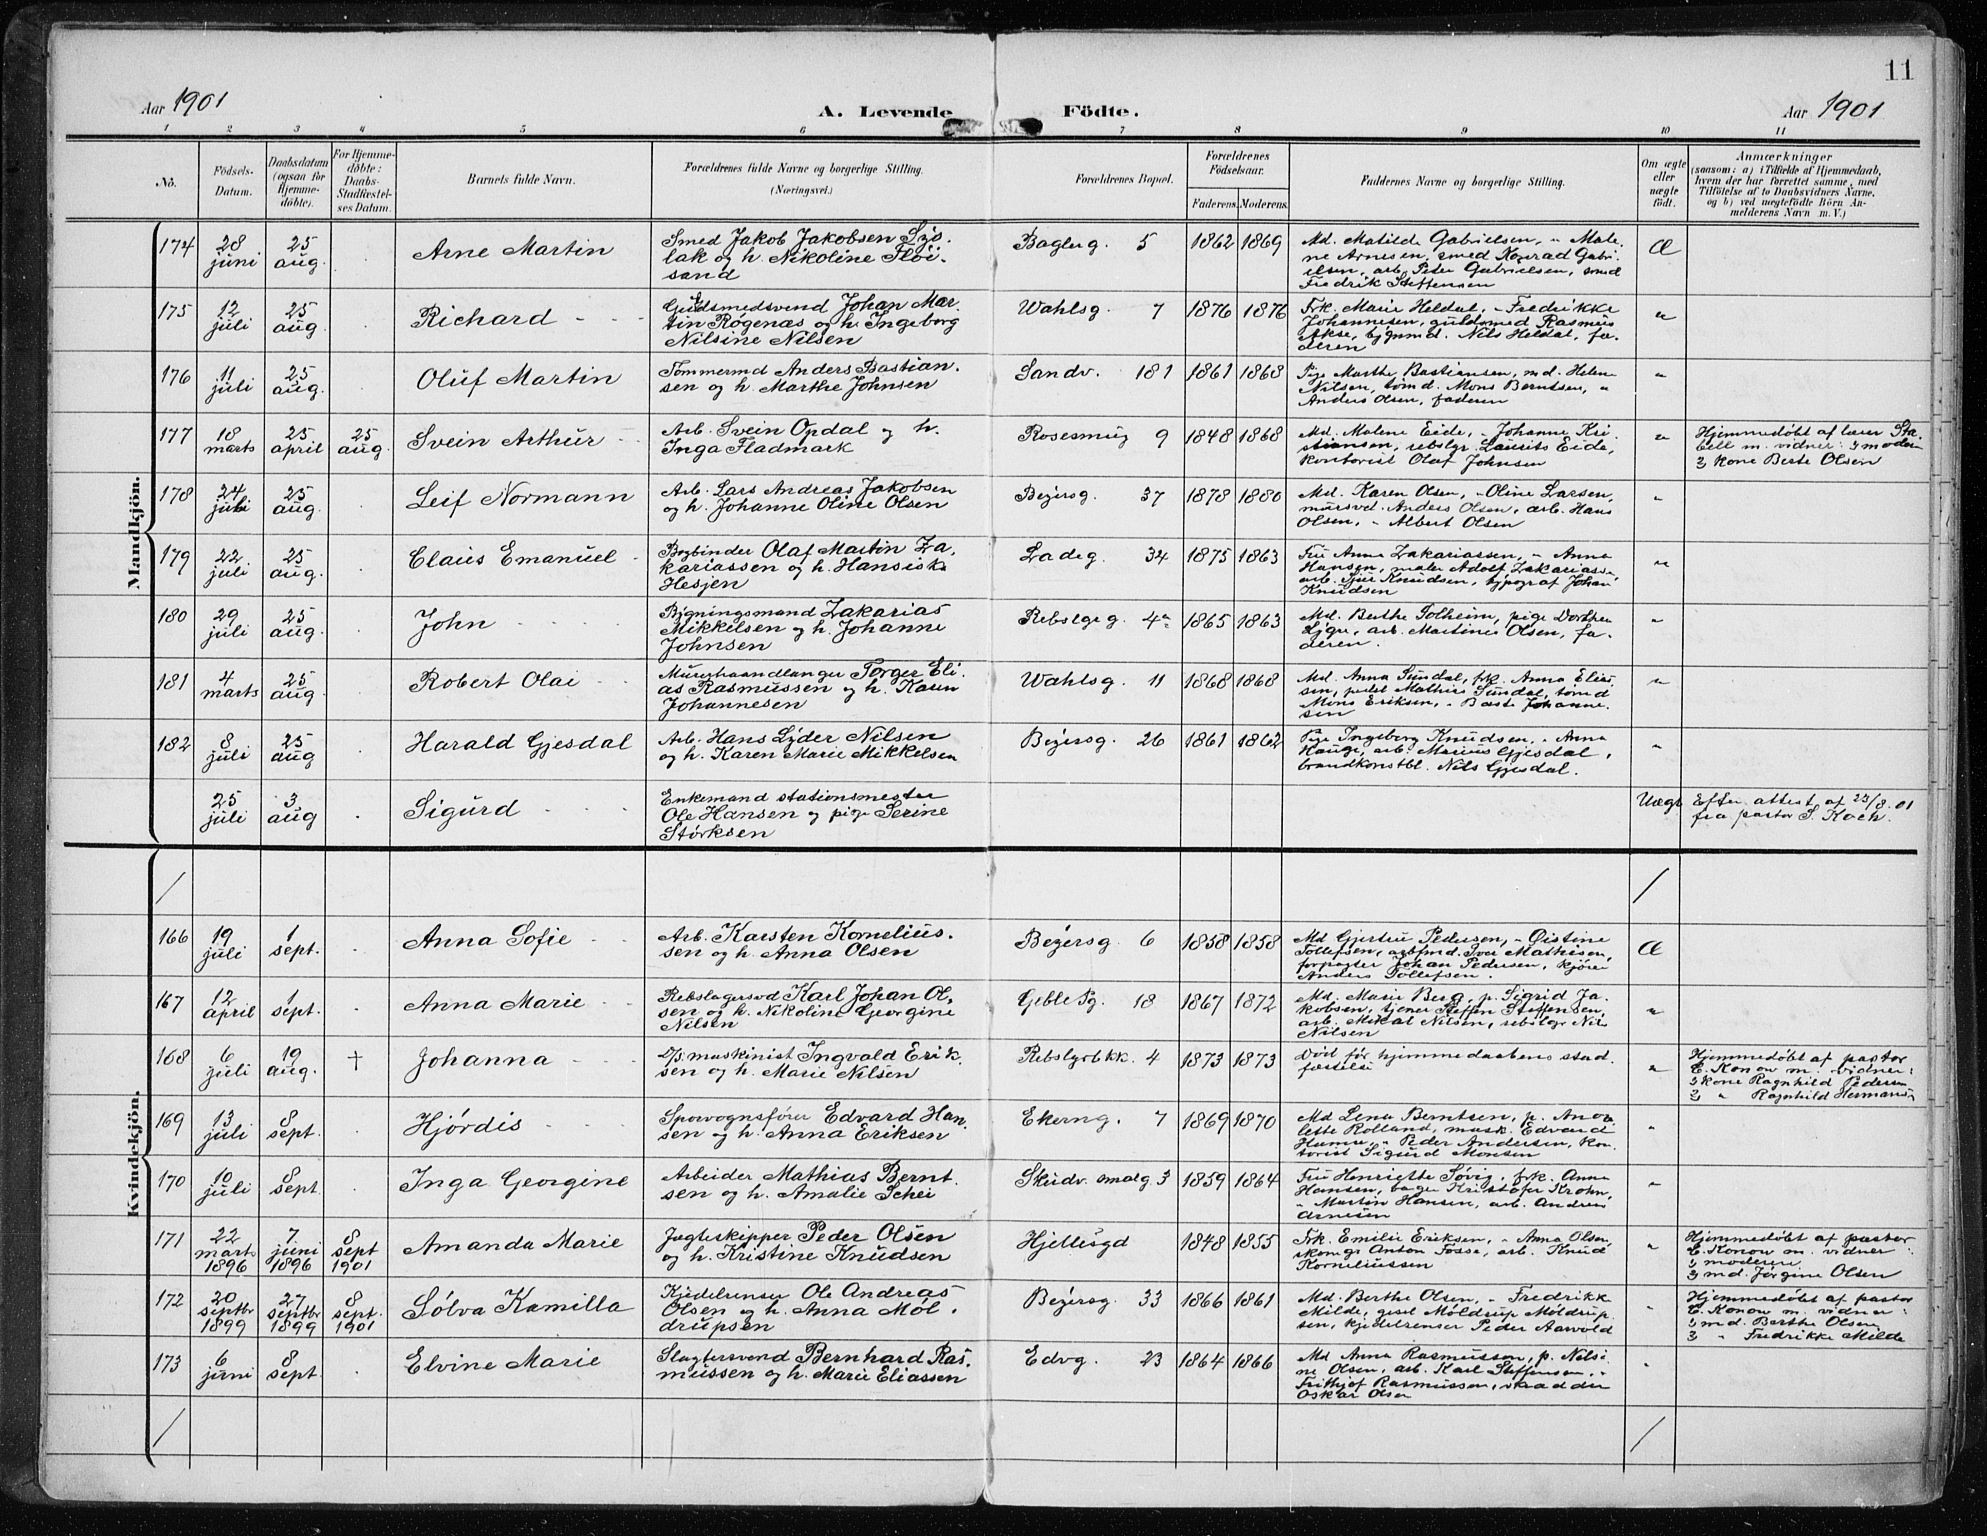 11
Aar 1901
A. Levende
Födte.
Aar 1901
1 2 3 4 5 6 7 8 9 10 11
No.
Födsels-
Datum.
Daabsdatum
(ogsaa for
Hjemme-
döbte).
For Hjemme-
döbte:
Daabs-
Stadfæstel-
ses Datum.
Barnets fulde Navn.
Forældrenes fulde Navne og borgerlige Stilling.
(Næringsvei.)
Forældrenes Bopæl.
Forældrenes
Födselsaar.
Faderens. Moderens.
Faddernes Navne og borgerlige Stilling.
Om ægte
eller
uægte
födt.
Anmærkninger
(saasom: a) i Tilfælde af Hjemmedaab,
hvem der har forrettet samme, med
Tilföielse af to Daabsvidners Navne,
og b) ved uægtefödte Börn An-
melderens Navn m. V.)
Mandkjön.
174
28
juni
25
aug.
Arne Martin
Smed Jakob Jakobsen Lys-
lak og h. Nikoline Fløi-
sand
Baglerg. 5
1862 1869
Md. Matilde Gabrielsen, " Male
ne Arnesen, smed Konrad Gabri-
elsen, arb. Peder Gabrielsen, smed
Fredrik Steffensen
Æ
175
12
juli
25
aug.
Richard
Guldsmedsvend Johan Mar-
tin Røgenæs og h. Ingeborg
Nilsine Nilsen
Wahlsg. 7
1876 1876
Frk. Marie Heldal, " Fredrikke
Johannesen, guldsmed Rasmus
Askse, bygnmd. Nils Heldal, fa-
deren
"
176
11
juli
25
aug.
Oluf Martin
Tømmermd Anders Bastian-
sen og h. Marthe Johnsen
Sandv. 181
1861 1868
Pige Marthe Bastiansen, md. Helene
Nilsen, tømd. Mons Berntsen, "
Anders Olsen, faderen
"
177
18
marts
25
april
25
aug.
Svein Arthur
Arb. Svein Opdal og h.
Inga Fladmark
Rosesmug 9
1848 1868
Md. Malene Eide, " Johanne Kri-
stiansen, rebslgr. Lauritz Eide,
kontorist Olaf Johnsen
"
Hjemmedøbt af lærer Sta-
bell m. vidner: 1 moder
2 kone Berte Olsen
178
24
juli
25
aug.
Leif Normann
Arb. Lars Andreas Jakobsen
og h. Johanne Oline Olsen
Beyersg. 37
1878 1880
Md. Karen Olsen, " Oline Larsen,
mursvd. Anders Olsen, arb. Hans
Olsen, " Albert Olsen
"
179
22
juli
25
aug.
Claus Emanuel
Bogbinder Olaf Martin Za-
kariassen og h. Hansiske
Hesjen
Ladeg. 34
1875 1863
Fru Anna Zakariassen, " Anna
Hansen, maler Adolf Zakariass.
arb. Sjur Knudsen, typograf Johan
Knudsen
"
180
29
juli
25
aug.
John
Bygningsmand Zakarias
Mikkelsen og h. Johanne
Johnsen
Rebslgeg. 4a
1865 1863
Md. Berthe Solheim, pige Dorthea
Lygre, arb. Martines Olsen, fa-
deren.
"
181
4
marts
25
aug.
Robert Olai
Murerhaandlanger Torger Eli-
as Rasmussen og h. Karen
Johannesen
Wahlsg. 11
1868 1868
Md. Anna Sundal, frk. Anna Elias-
sen, Mathias Sundal, tømd
Mons Eriksen, " Johanne-
sen
"
182
8
juli
25
aug
Harald Gjesdal
Arb. Hans Lyder Nilsen
og h. Karen Marie Mikkelsen
Beyersg. 26
1861 1862
Pige Ingeborg Knudsen, " Anna
Hauge, arb. Marius Gjesdal,
brandkonstbl. Nils Gjesdal.
"
25
juli
3
aug
Sigurd
Enkemand stationsmester
Ole Hansen og pige Serine
Størksen
Uægt
Efter attest af 23/8.01
fra pastor S. Koch.
Kvindekjön.
166
19
juli
1
sept.
Anna Sofie
Arb. Karsten Kornelius-
sen og h. Anna Olsen
Beyersg. 6
1858 1858
Md Gjertru Pedersen, " Øistine
Tollefsen, arbfmd. Iver Mathisen,
forpagter Johan Pedersen, kjører
Anders Tollefsen.
Æ
167
12
april
1
sept.
Anna Marie
Rebslagersvd Karl Johan Ol-
sen og h. Nikoline Georgine
Nilsen
Geble Pg. 18
1867 1872
Md. Marie Berg, p. Sigrid Ja-
kobsen, tjener Steffen Steffensen,
arb. Mikal Nilsen, rebslgr Nils
Nilsen
"
168
6
juli
19
aug.
†
Johanna
D/S. maskinist Ingvald Erik-
sen og h. Marie Nilsen
Rebslgrbkk. 4
1873 1873
Død før hjemmedaabens stad-
fæstelse
"
Hjemmedøbt af pastor
E. Konow m. vidner:
1 kone Ragnhild Pedersen
2 " Ragnhild Hermansen
169
13
juli
8
sept.
Hjørdis
Sporvognsfører Edvard Han-
sen og h. Anna Eriksen
Ekerng. 7
1869 1870
Md Lena Berntsen, p. Ano-
lette Rolland, mask. Edvard
Hamre, " Peder Andersen, kon-
torist Sigurd Monsen
"
170
10
juli
8
sept
Inga Georgine
Arbeider Mathias Bernt-
sen og h. Amalie Schei
Skudv. smalg 3
1859 1864
Fru Henriette Søvig, frk. Anna
Hansen, bager Kristofer Krohn,
" Martin Hansen, arb. Andreas
Arnesen
"
171
22
marts
1896
7
juni
1896
8
sept
1901
Amanda Marie
Jagteskipper Peder Olsen
og h. Kristine Knudsen
Hjeltesgd
1848 1855
Frk. Emilie Eriksen, " Anna Olsen,
skomgr Anton Fosse, arb. Knud
Korneliussen
"
Hjemmedøbt af pastor
E. Konow m. vidner:
1 moderen
2 md. Jørgine Olsen
172
20
septbr
1899
27
septbr
1899
8
sept.
1901
Sølva Kamilla
Kjedelrenser Ole Andreas
Olsen og h. Anna Mol-
drupsen
Beyersg. 33
1866 1861
Md. Berthe Olsen, " Fredrikk
Milde, gesel Moldrup Moldrup-
sen, kjedelrenser Peder Aarvold
"
Hjemmedøbt af pastor
E. Konow m. vidner:
1 md. Berthe Olsen
2 " Fredrikke Milde
173
6
juni
8
sept.
Elvine Marie
Slagtersvend Bernhard Ras-
mussen og h. Marie Eliassen
Edvg. 23
1864 1866
Md Anna Rasmussen, p. Nilsi-
ne Olsen, arb. Karl Steffensen, "
Frithjof Rasmussen, skrædder
Oskar Olsen
"